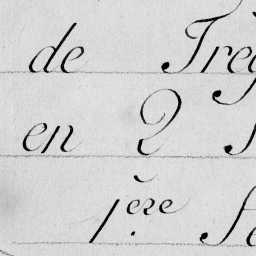 de Trég
en 2
1.ère